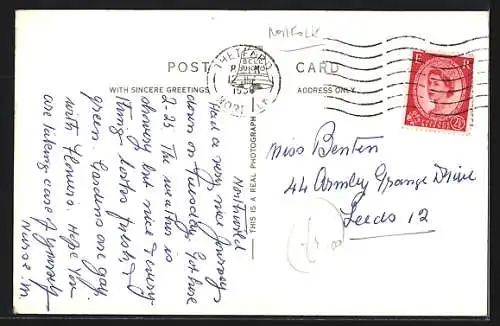 Norfolk
POST CARD
WITH SINCERE GREETINGS
ADDRESS ONLY
THIS IS A REAL PHOTOGRAPH
THETFORD
NORFOLK
E R
Northwold
Had a very nice journey
down on Tuesday. Got here
2-25 The weather is
showery but nice & every
thing looks fresh &
green. Gardens are gay
with flowers. Hope You
are taking care of yourself
Nurse. M.
Miss Benten
44 Armley Grange Drive
Leeds 12